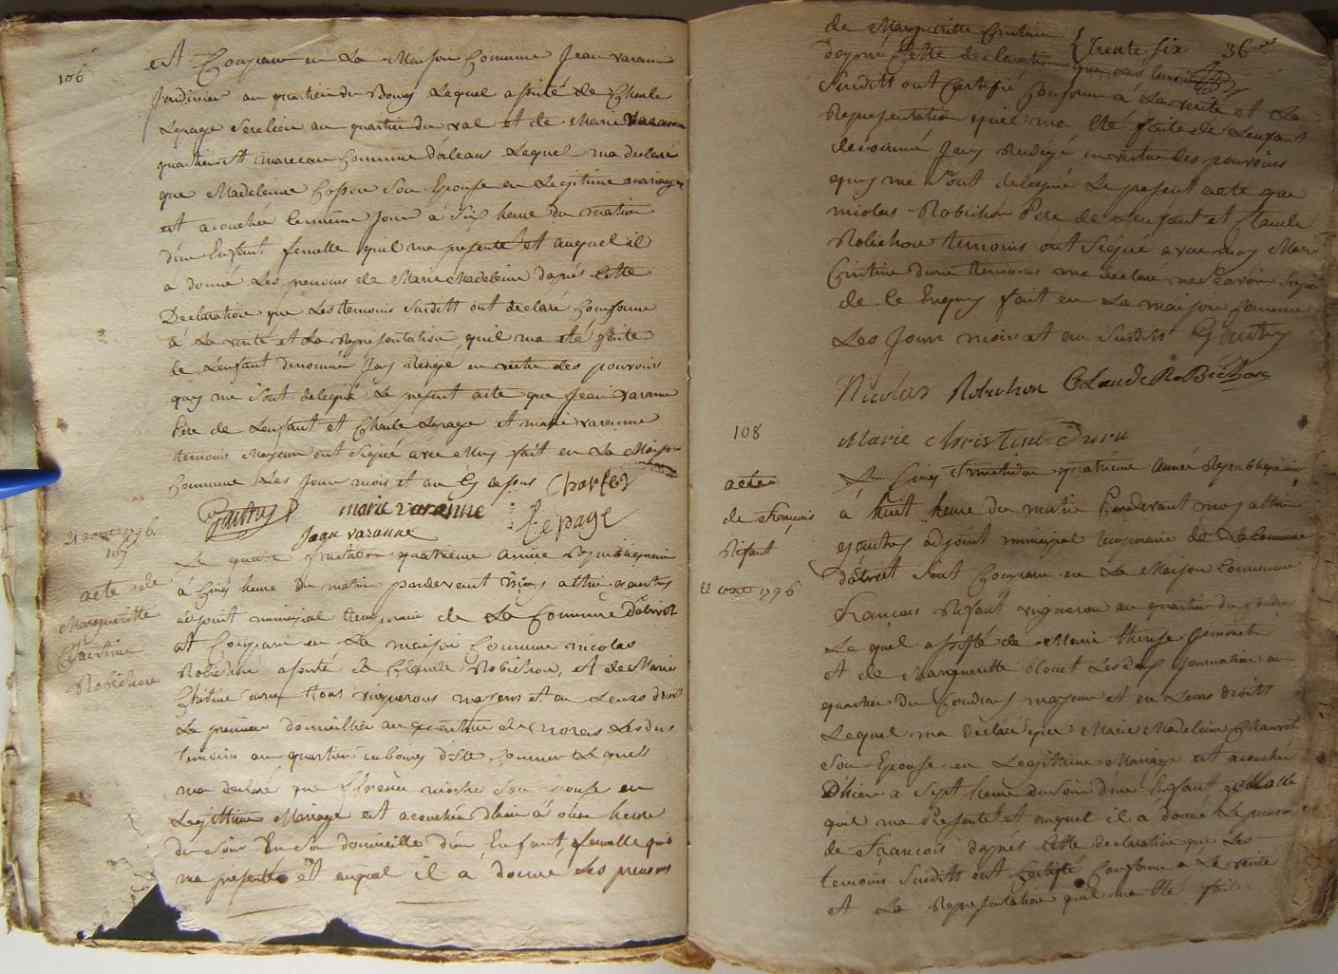 106
Est Comparu en La Maison Commune Jean varanne
Jardinier au quartier du Bourg Lequel assisté de Charle
Lepage Serclier au quartier du val et de Marie Varanne
commune d'orleans Lequel ma declaré
que Madeleine Son Epouse en Legitime mariage
est acouchée le même Jour a Six heure du matin
d'un Enfant femelle quil ma presenté et auquel il
a donné Les prenoms de Marie Madeleine dapres Cette
Declaration que Les temoins Susdits ont declaré Conforme
à La verité et La Representation quil ma eté faite
de Lenfant denommé Jay Redigé en vertu des pouvoirs
quy me Sont delegué Le present acte que Jean varanne
Pere de Lenfant et Charle Lepage et marie varenne
temoins ont Signé avec Moy fait en La Maison
Commune Les Jour mois et an Cy dessus Charles
Gautry marie varanne Lepage
Jean varanne
21 aout 1796
107
acte de
Margueritte
Christine
Robichon
Le quatre fructidor quatrieme année Republiquaine
à Cinq heure du matin pardevant Moy
adjoint municipal de La Commune D'olivet
Est Comparu en La maison Commune nicolas
Robichon assisté de Claude Robichon, et de Marie
Cristine tous vignerons majeurs et en Leurs droits
Le premier domicillié au quartier Les deux
temoins au quartier du bourg de cette Commune Lequell
ma declaré que Son Epouse en
Legittime Mariage est acouchée d'hier à onze heure
du Soir En Son domicille d'un Enfant femelle quil
ma presenté et auquel il a donné Les prenoms
de Margueritte Cristine { Trente six 36
dapres Cette declaration que Les temoins
Susdits ont Certifié Conforme à La verité et La
Representation quil ma eté faite de Lenfant
denommé Jay Redigé en vertu des pouvoirs
quy me Sont delegué Le present acte que
nicolas Robichon Pere de Lenfant et Claude
Robichon temoins ont Signé avec moy Marie
Cristine temoins me declare ne Savoir Signé
de le Enquis fait en La maison Commune
Les Jour mois et an Susdits Gautry
Nicolas Robichon Claude Robichon
Marie Christine Duru
108
acte
de François
Rifaut
22 aout 1796
Le Cinq fructidor quatrieme année Republiquaine
à huit heure du matin Pardevant moy
Gautry adjoint municipal de La Commune
D'olivet Sont Comparu en La Maison Commune
François Rifaut vigneron au quartier du
Le quel assisté de Marie therese
et de Margueritte Les deux Journaliere au
quartier du Coudray majeur et en Leurs droits
Lequel ma declaré que Marie Madeleine
Son Epouse en Legitime Mariage est acouchée
D'hier a Sept heure du Soir d'un Enfant Malle
quil ma Presenté et auquel il a donné Le prenom
de François dapres Cette declaration que Les
temoins Susdits ont Certifié Conforme a La verité
et La Representation quil ma eté faite